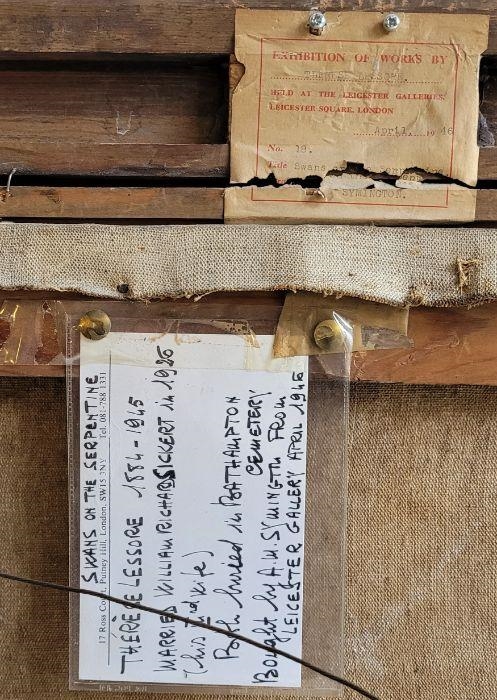 EXHIBITION OF WORKS BY
HELD AT THE LEICESTER GALLERIES,
LEICESTER SQUARE, LONDON
April, 1946
No. 19.
Title Swans
SYMINGTON.
SWANS ON THE SERPENTINE
17 Ross Court, Putney Hill, London, SW15 3NY Tel. 081-788 1331
THÉRÈSE LESSORE 1884-1945
MARRIED WILLIAM RICHARD SICKERT in 1926
(his wife)
Both buried in BATHAMPTON
CEMETERY
Bought by A.W. SYMINGTON FROM
LEICESTER GALLERY APRIL 1946